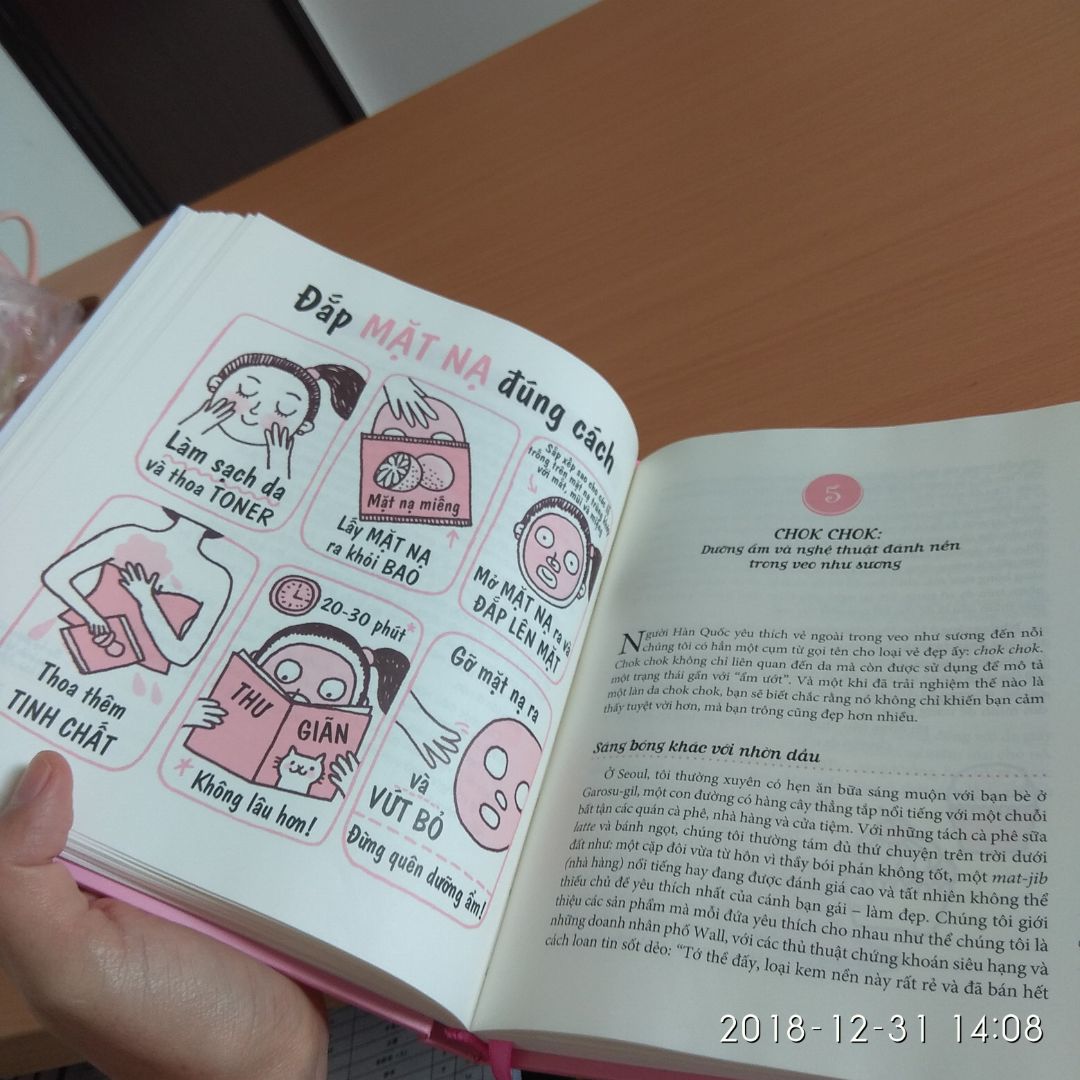 Đắp MẶT NẠ đúng cách
Làm sạch da
và thoa TONER
Mặt nạ miếng
Lấy MẶT NẠ
ra khỏi BAO
Sắp xếp sao cho các lỗ
trống trên mặt nạ trùng khớp
với mắt, mũi và miệng
Mở MẶT NẠ ra và
ĐẮP LÊN MẶT
Thoa thêm
TINH CHẤT
20-30 phút*
THƯ
GIÃN
*Không lâu hơn!
Gỡ mặt nạ ra
và
VỨT BỎ
Đừng quên dưỡng ẩm!
5
CHOK CHOK:
Dưỡng ẩm và nghệ thuật đánh nền
trong veo như sương
Người Hàn Quốc yêu thích vẻ ngoài trong veo như sương đến nỗi
chúng tôi có hẳn một cụm từ gọi tên cho loại vẻ đẹp ấy: chok chok.
Chok chok không chỉ liên quan đến da mà còn được sử dụng để mô tả
một trạng thái gắn với “ẩm ướt”. Và một khi đã trải nghiệm thế nào là
một làn da chok chok, bạn sẽ biết chắc rằng nó không chỉ khiến bạn cảm
thấy tuyệt vời hơn, mà bạn trông cũng đẹp hơn nhiều.
Sáng bóng khác với nhờn dầu
Ở Seoul, tôi thường xuyên có hẹn ăn bữa sáng muộn với bạn bè ở
Garosu-gil, một con đường có hàng cây thẳng tắp nổi tiếng với một chuỗi
bất tận các quán cà phê, nhà hàng và cửa tiệm. Với những tách cà phê sữa
latte và bánh ngọt, chúng tôi thường tám đủ thứ chuyện trên trời dưới
đất như: một cặp đôi vừa từ hôn vì thầy bói phán không tốt, một mat-jib
(nhà hàng) nổi tiếng hay đang được đánh giá cao và tất nhiên không thể
thiếu chủ đề yêu thích nhất của cánh bạn gái – làm đẹp. Chúng tôi giới
thiệu các sản phẩm mà mỗi đứa yêu thích cho nhau như thể chúng tôi là
những doanh nhân phố Wall, với các thủ thuật chứng khoán siêu hạng và
cách loan tin sốt dẻo: “Tớ thề đấy, loại kem nền này rất rẻ và đã bán hết
2018-12-31 14:08